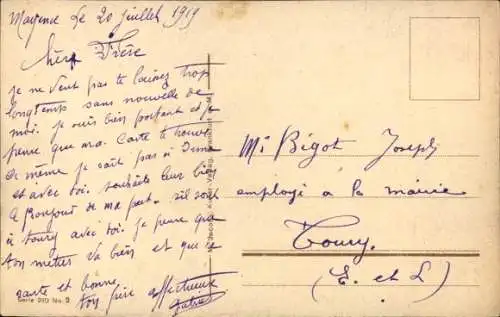 Mayence le 20 juillet 1919
Cher Frère
je ne veut pas te laissez trop
longtemts sans nouvelle de
moi. je suis bien portant et je
pense que ma carte te trouve
de même je sait pas si
est avec toi. souhaite leur bien
le bonjour de ma part. s'il sont
à toury avec toi. je pense que
ton metier va bien et que
sante et bonne.
ton frère affectueux
Mr Bigot Joseph
employé a la mairie
Toury.
(E. et L)
Serie 910 No. 2